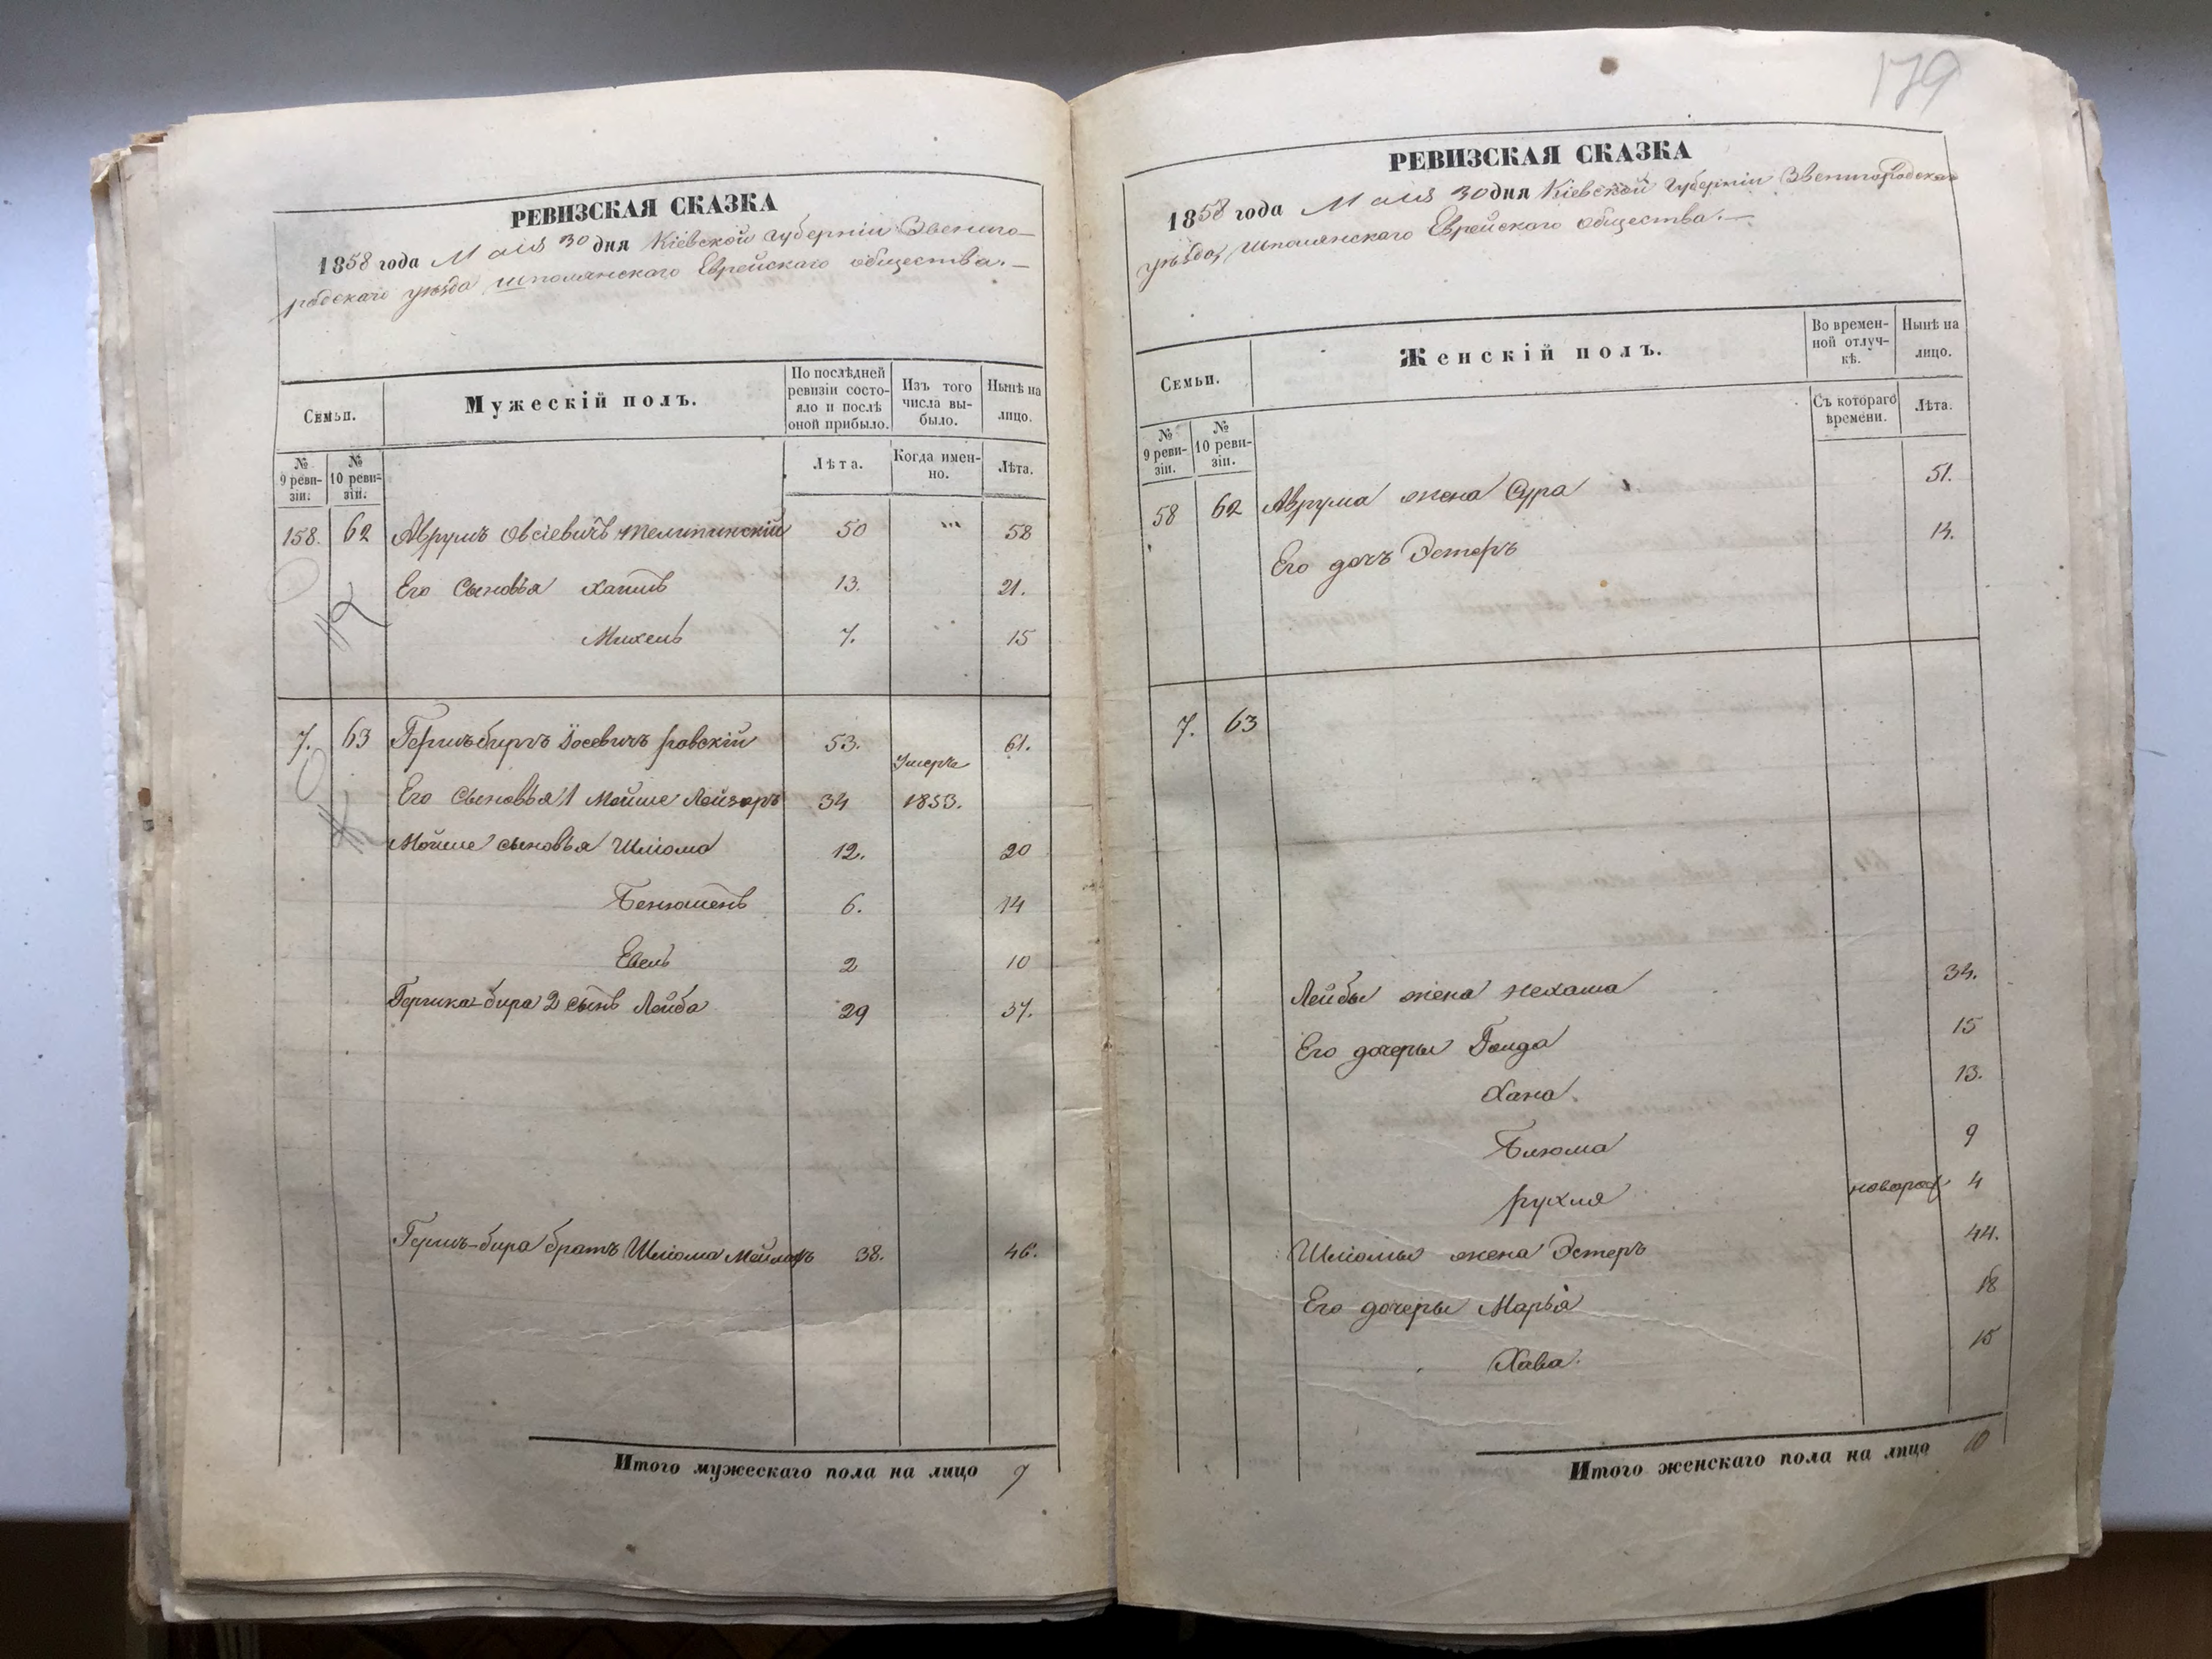 РЕВИЗСКАЯ СКАЗКА
1858 года Мая 30 дня Кіевской губерніи Звениго-
родскаго уѣзда шполянскаго Еврейскаго общества.—
Семьи.
Мужескій полъ.
По послѣдней ревизіи состо-
яло и послѣ оной прибыло.
Изъ того числа вы-
было.
Нынѣ на лицо.
№ 9 реви-
зіи.
№ 10 реви-
зіи.
Лѣта.
Когда имен-
но.
Лѣта.
158. 62 Аврумъ Овсіевичъ 50 58
Его Сыновья 13. 21.
Михель 7. 15
7. 63 Іосевичъ 53. 61.
Умеръ
Его Сыновья 1 Мойше Лейзоръ 34 1853.
Мойше сыновья Шліома 12. 20
6. 14
Евель 2 10
2 сынъ Лейба 29 37.
Гершъ-бира братъ Шліома 38. 46.
Итого мужескаго пола на лицо 7
179
РЕВИЗСКАЯ СКАЗКА
1858 года Мая 30 дня Кіевской губерніи Звенигородскаго
уѣзда, шполянскаго Еврейскаго общества.—
Семьи.
Женскій полъ.
Во времен-
ной отлуч-
кѣ.
Нынѣ на лицо.
№ 9 реви-
зіи.
№ 10 реви-
зіи.
Съ котораго времени.
Лѣта.
58 62 Аврума жена Сура 51.
Его дочь Эстеръ 14.
7. 63
Лейбы жена Нехама 34.
Его дочеры Голда 15
Хана. 13.
Блюма 9
Рухля новорож 4
Шліомы жена Эстеръ 44.
Его дочеры Марья 18
Хава. 15
Итого женскаго пола на лицо 10